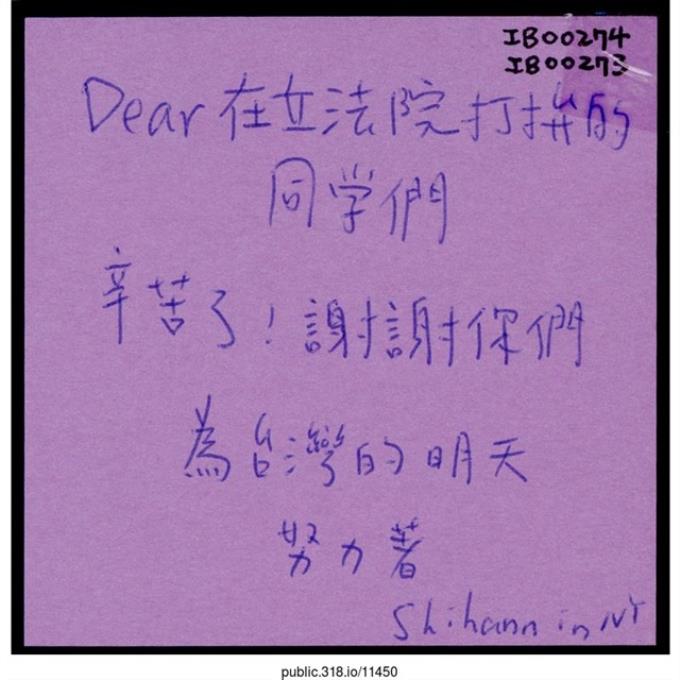 IB00274
IB00273
Dear 在立法院打拚的
同学們
辛苦了！謝謝你們
為台灣的明天
努力著
Shihann in NY
public.318.io/11450